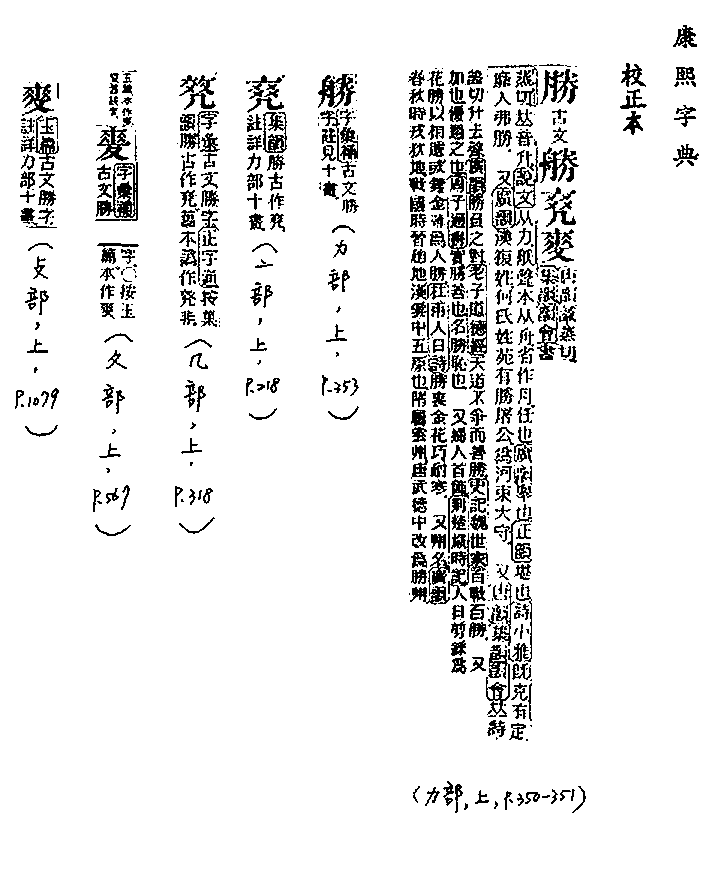 康熙字典
校正本
勝 古文
唐韻識蒸切
集韻韻會書
蒸切𠀤音升說文从力朕聲本从舟省作月任也廣韻舉也正韻堪也詩小雅旣克有定
靡人弗勝 又廣韻漢複姓何氏姓苑有勝屠公爲河東大守 又唐韻集韻韻會𠀤詩
證切升去聲廣韻勝負之對老子道德經天道不爭而善勝史記魏世家百戰百勝 又
加也優過之也周子通書實勝善也名勝恥也 又婦人首飾荆楚歲時記人日剪綵爲
花勝以相遺或鏤金薄爲人勝 人日詩勝裏金花巧耐寒 又州名廣韻
春秋時戎狄地戰國時晉趙地漢雲中五原也隋屬雲州唐武德中改爲勝州
(力部,上,P.350-351)
字彙補古文勝
字註見十畫
(力部,上,P.353)
集韻勝古作
註詳力部十畫
(二部,上,P.218)
字彙古文勝字正字通按集
韻勝古作 不 作 非
(几部,上,P.318)
字彙補
古文勝
字○按玉
篇本作
(文部,上,P.569)
玉篇古文勝字
註詳力部十畫
(攴部,上,P.1079)